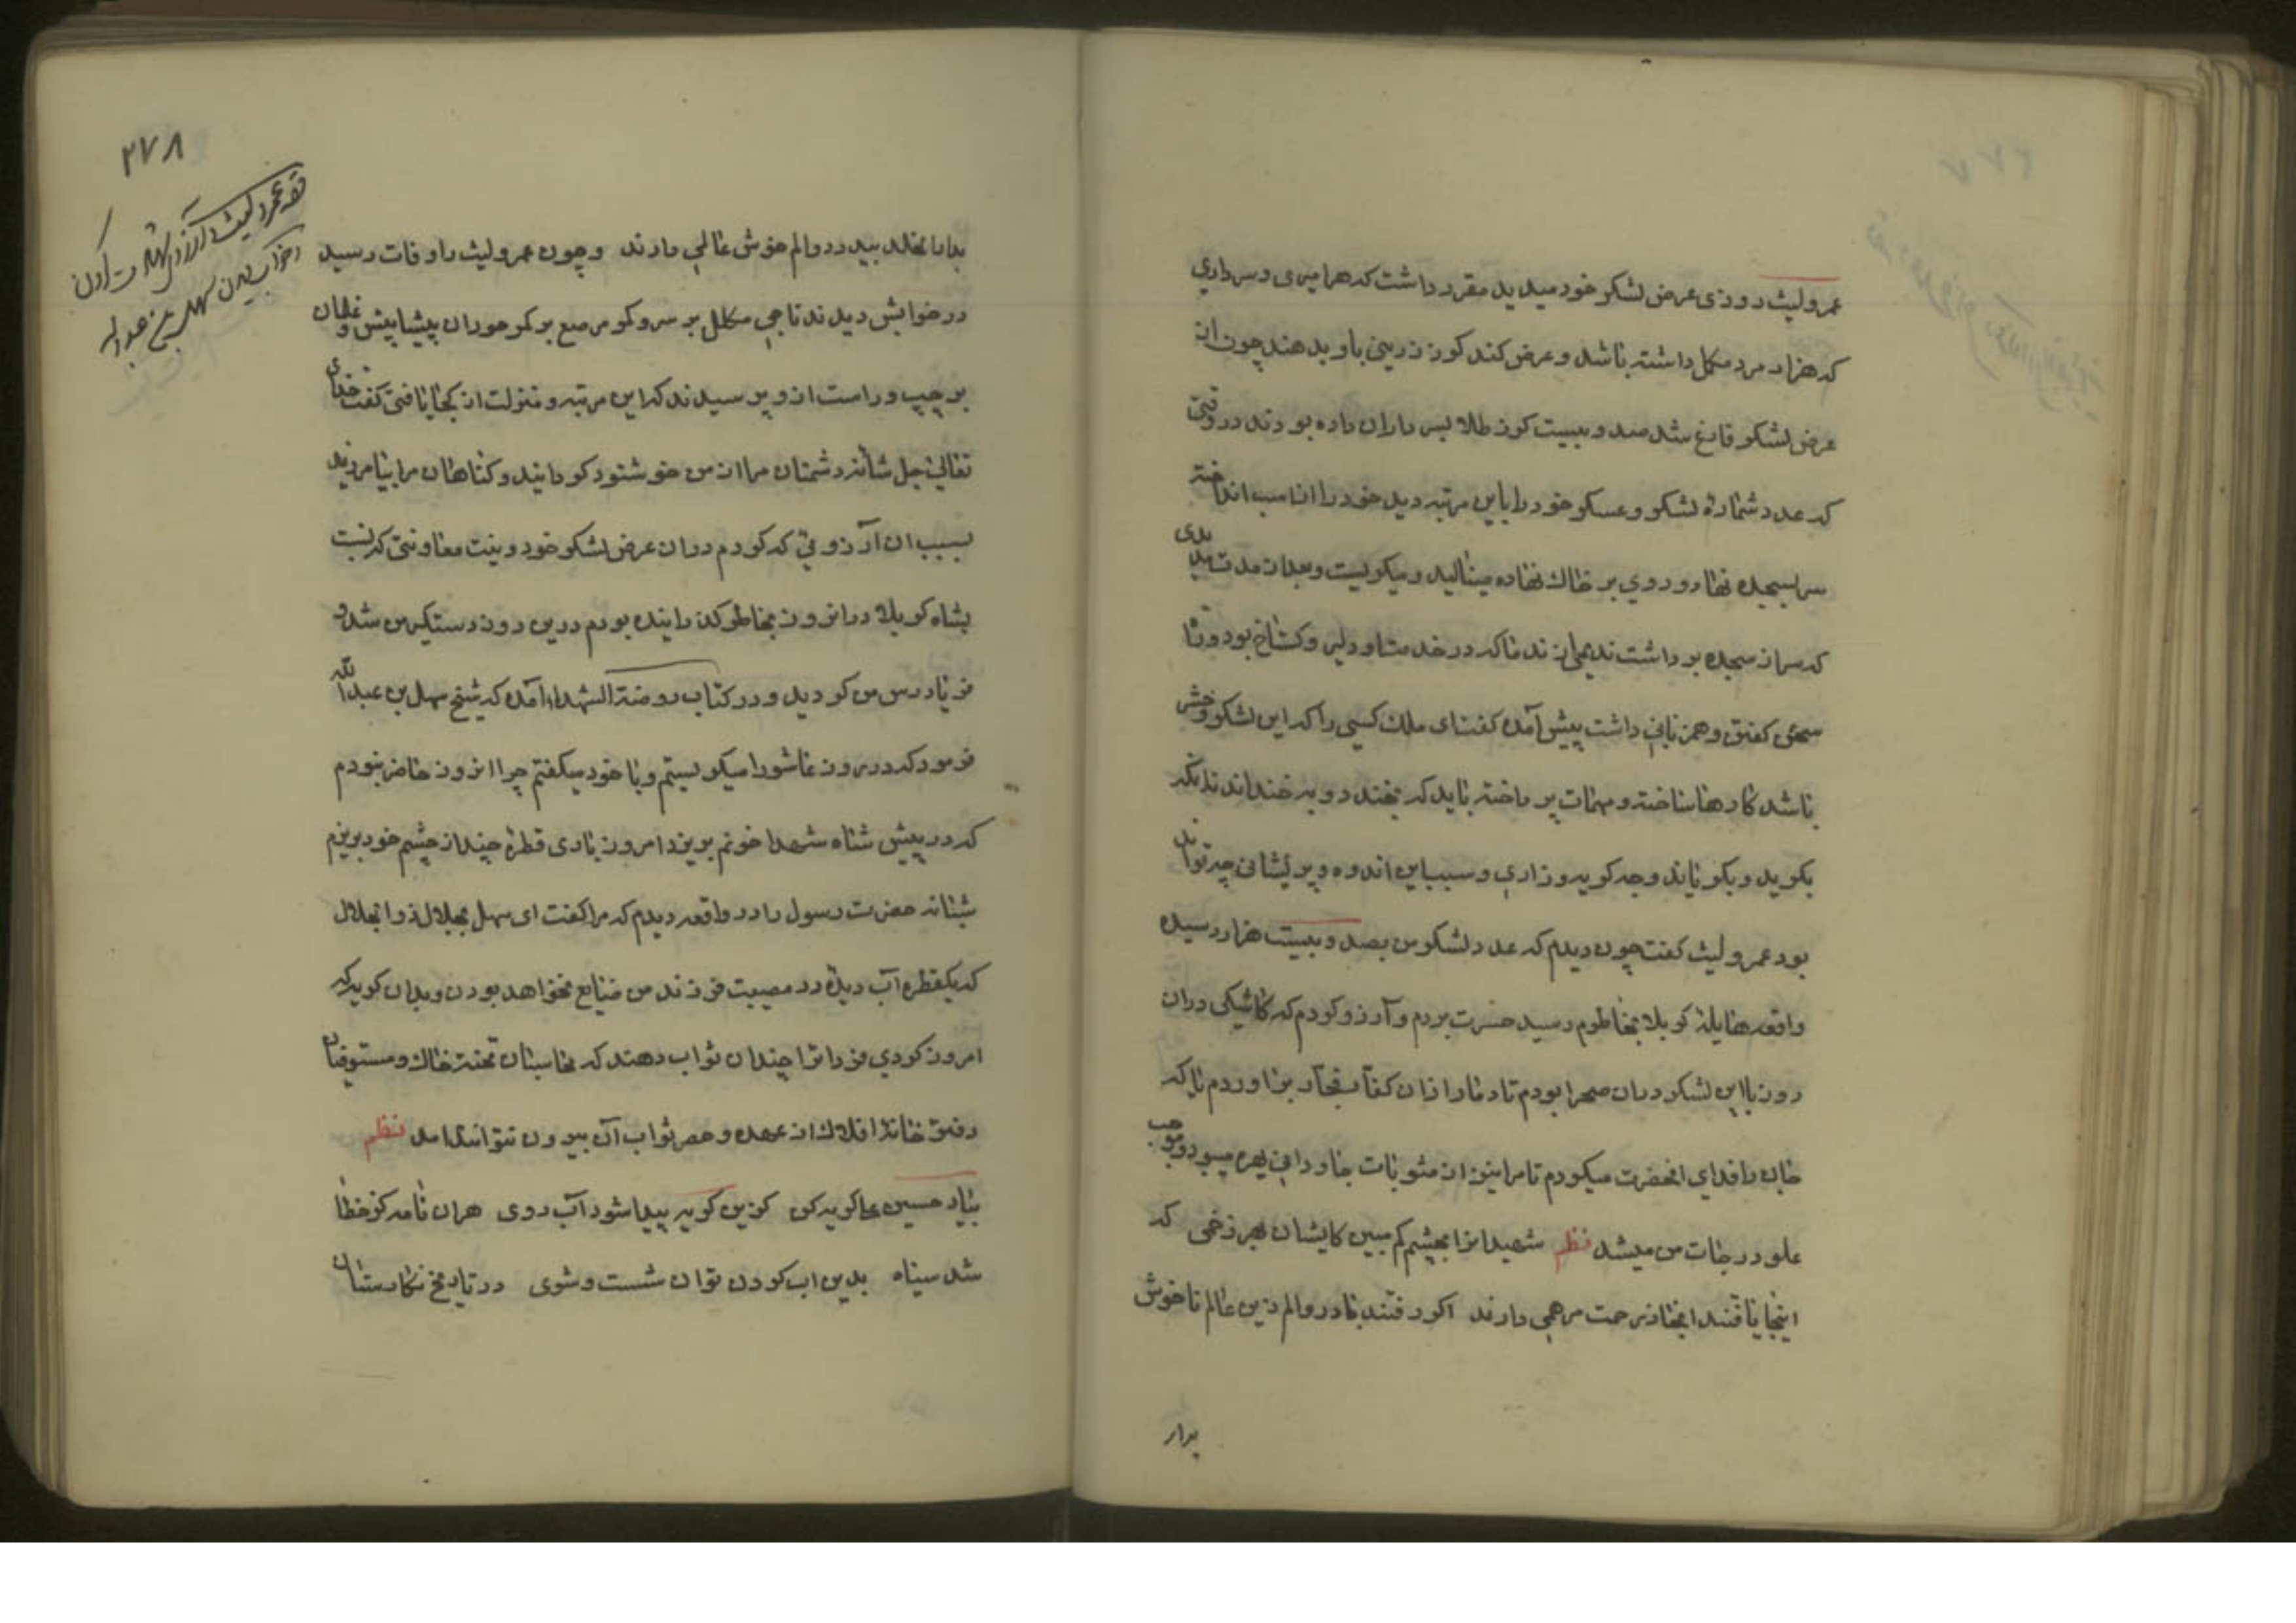 عمرو لیث روزی عرض لشکر خود میدید مقرر داشت که هر امیری و سرداری
که هزار مرد مکمل داشته باشد و عرض کند کرز زرینی باو بدهند چون از
عرض لشکر فارغ شد صد و بیست کرز طلا بسرداران داده بودند در وقتی
که عدد شمارهٔ لشکر و عسکر خود را باین مرتبه دید خود را از اسب انداخته
سر بسجده نهاد و روی بر خاک نهاده مینالید و میکریست و بعد از مدت مدیدی
که سر از سجده برداشت ندیمی از ندما که در خدمت او دلیر و کستاخ بود و زیا
سخن کفتن و همزبانی داشت پیش آمده کفت ای ملک کسی را که این لشکر و حشر
باشد کارها ساخته و مهمات پرداخته باید که بخندد و بر خنداند نه آنکه
بکرید و بکریاند وجه کریه و زاری و سبب این اندوه و پریشانی چه تواند
بود عمرو لیث کفت چون دیدم که عدد لشکر من بصد و بیست هزار رسیده
واقعه هایلهٔ کربلا بخاطرم رسید حسرت بردم و آرزو کردم که کاشکی در آن
روز با این لشکر در آن صحرا بودم تا دمار از آن کفار فجار بر آوردم یا که
جان را فدای آنحضرت میکردم تا مرا نیز از مثوبات جاودانی بهره میبود و موجب
علو درجات من میشد نظم شهیدانرا بچشم کم مبین کایشان بهر زخمی که
اینجا یافتند آنجا ز رحمت مرهمی دارند اکر رفتند با درد و الم زین عالم ناخوش
بدار
۲۷۸
قصه عمرو لیث و آرزوی شهادت کردن
و خواب دیدن سهل بن عبدالله
بدار الخلد بی درد و الم خوش عالمی دارند و چون عمرو لیث را وفات رسید
در خوابش دیدند تاجی مکلل بر سر و کمر مرصع بر کمر حوران پیشاپیش و غلمان
بر چپ و راست از و پرسیدند که این مرتبه و منزلت از کجا یافتی کفت خدای
تعالی جل شانه دشمنان مرا از من خوشنود کردانید و کناهان مرا بیامرزید
بسبب آن آرزوئی که کردم در آن عرض لشکر خود و نیت معاونتی که نسبت
بشاه کربلا در آنروز بخاطر کذرانیده بودم درین روز دستکیر من شد و
فریادرس من کردید و در کتاب روضة الشهدا آمده که شیخ سهل بن عبدالله
فرمود که در روز عاشورا میکریستم و با خود میکفتم چرا آنروز حاضر نبودم
که در پیش شاه شهدا خونم بریزد امروز باری قطرهٔ چند از چشم خود بریزم
شبانه حضرت رسول را در واقعه دیدم که مرا کفت ای سهل بجلال ذو الجلال
که یکقطره آب دیده در مصیبت فرزند من ضایع نخواهد بودن و بدان کریه که
امروز کردی فردا ترا چندان ثواب دهند که محاسبان تخته خاک و مستوفیان
دفتر خانهٔ افلاک از عهده و حصر ثواب آن بیرون نتوانند آمد نظم
بیاد حسین علی کریه کن کزین کریه پیدا شود آب روی هر آن نامه کز خطا
شد سیاه بدین آب کردن توان شست و شوی در تاریخ نکارستان